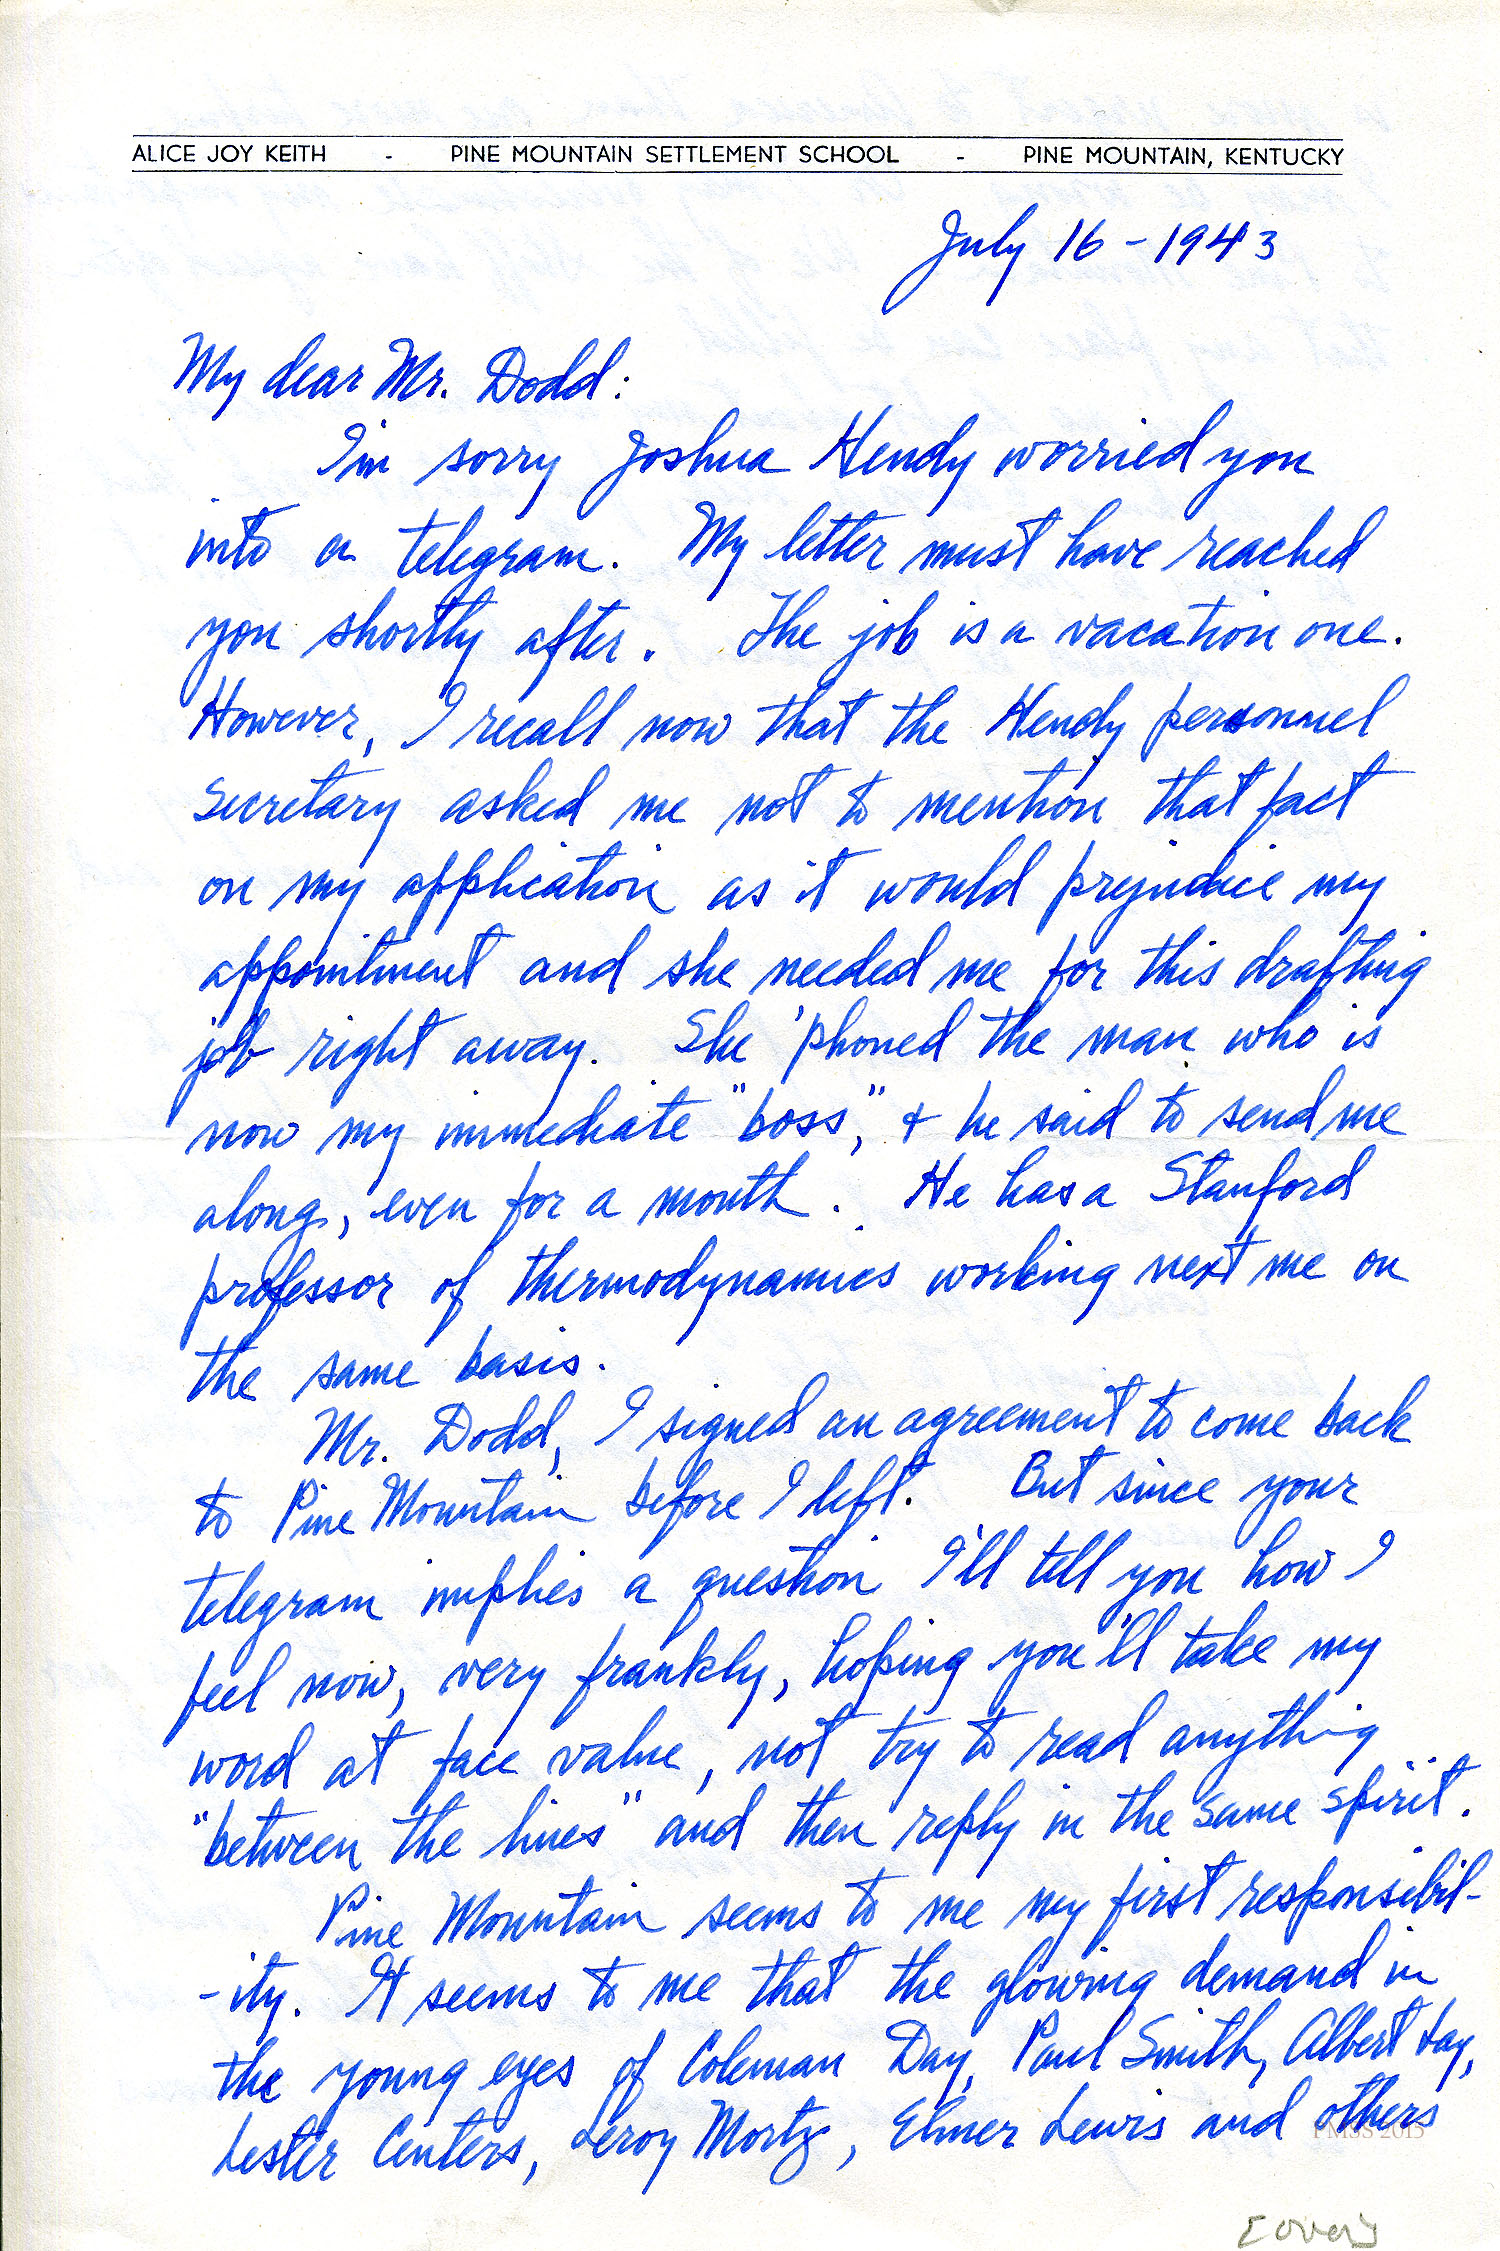 ALICE JOY KEITH - PINE MOUNTAIN SETTLEMENT SCHOOL - PINE MOUNTAIN, KENTUCKY
July 16 - 1943
My dear Mr. Dodd:
I'm sorry Joshua Hendy worried you
into a telegram. My letter must have reached
you shortly after. The job is a vacation one.
However, I recall now that the Hendy personnel
secretary asked me not to mention that fact
on my application as it would prejudice my
appointment and she needed me for this drafting
job right away. She 'phoned the man who is
now my immediate "boss," + he said to send me
along, even for a month. He has a Stanford
professor of thermodynamics working next me on
the same basis.
Mr. Dodd, I signed an agreement to come back
to Pine Mountain before I left. But since your
telegram implies a question I'll tell you how I
feel now, very frankly, hoping you'll take my
word at face value, not try to read anything
"between the lines" and then reply in the same spirit.
Pine Mountain seems to me my first responsibil-
-ity. It seems to me that the glowing demand in
the young eyes of Coleman Day, Paul Smith, Albert
Lester Centers, Leroy Mortz, Elmer Lewis and others
PMSS 2013
[over]